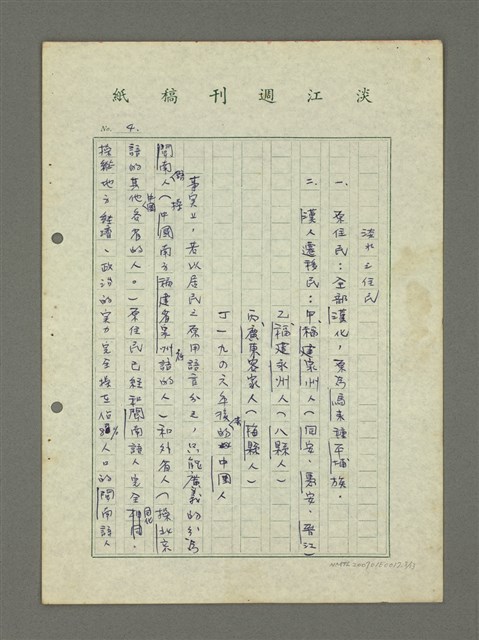 淡江週刊稿紙
No. 4.
淡水之住民
一、原住民：全部漢化，原為馬來種平埔族。
二、漢人遷移民：甲、福建泉州人（同安、惠安、晉江）
乙、福建永州人（八縣人）
丙、廣東客家人（梅縣人）
丁一九四六年後的中國人
事實上，若以居民之原用語言分之，只能廣義的分為
閩南人（操中國南方福建省泉州語的人）和外省人（操北京
語的其他中國各省的人。）原住民已經和閩南語人完全同化。
操縱地方經濟、政治的實力完全操在佔 人口的閩南語人